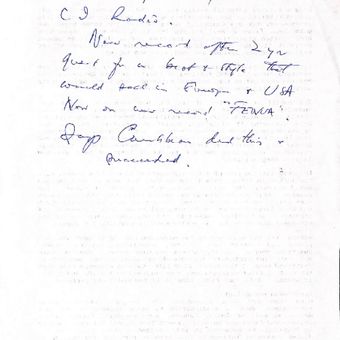 C I Radio.
New record after 2 yr
quest for a beat + style that
would sell in Europe + USA
Now on new record "FEWA".
Says Caribbean did this +
succeeded.